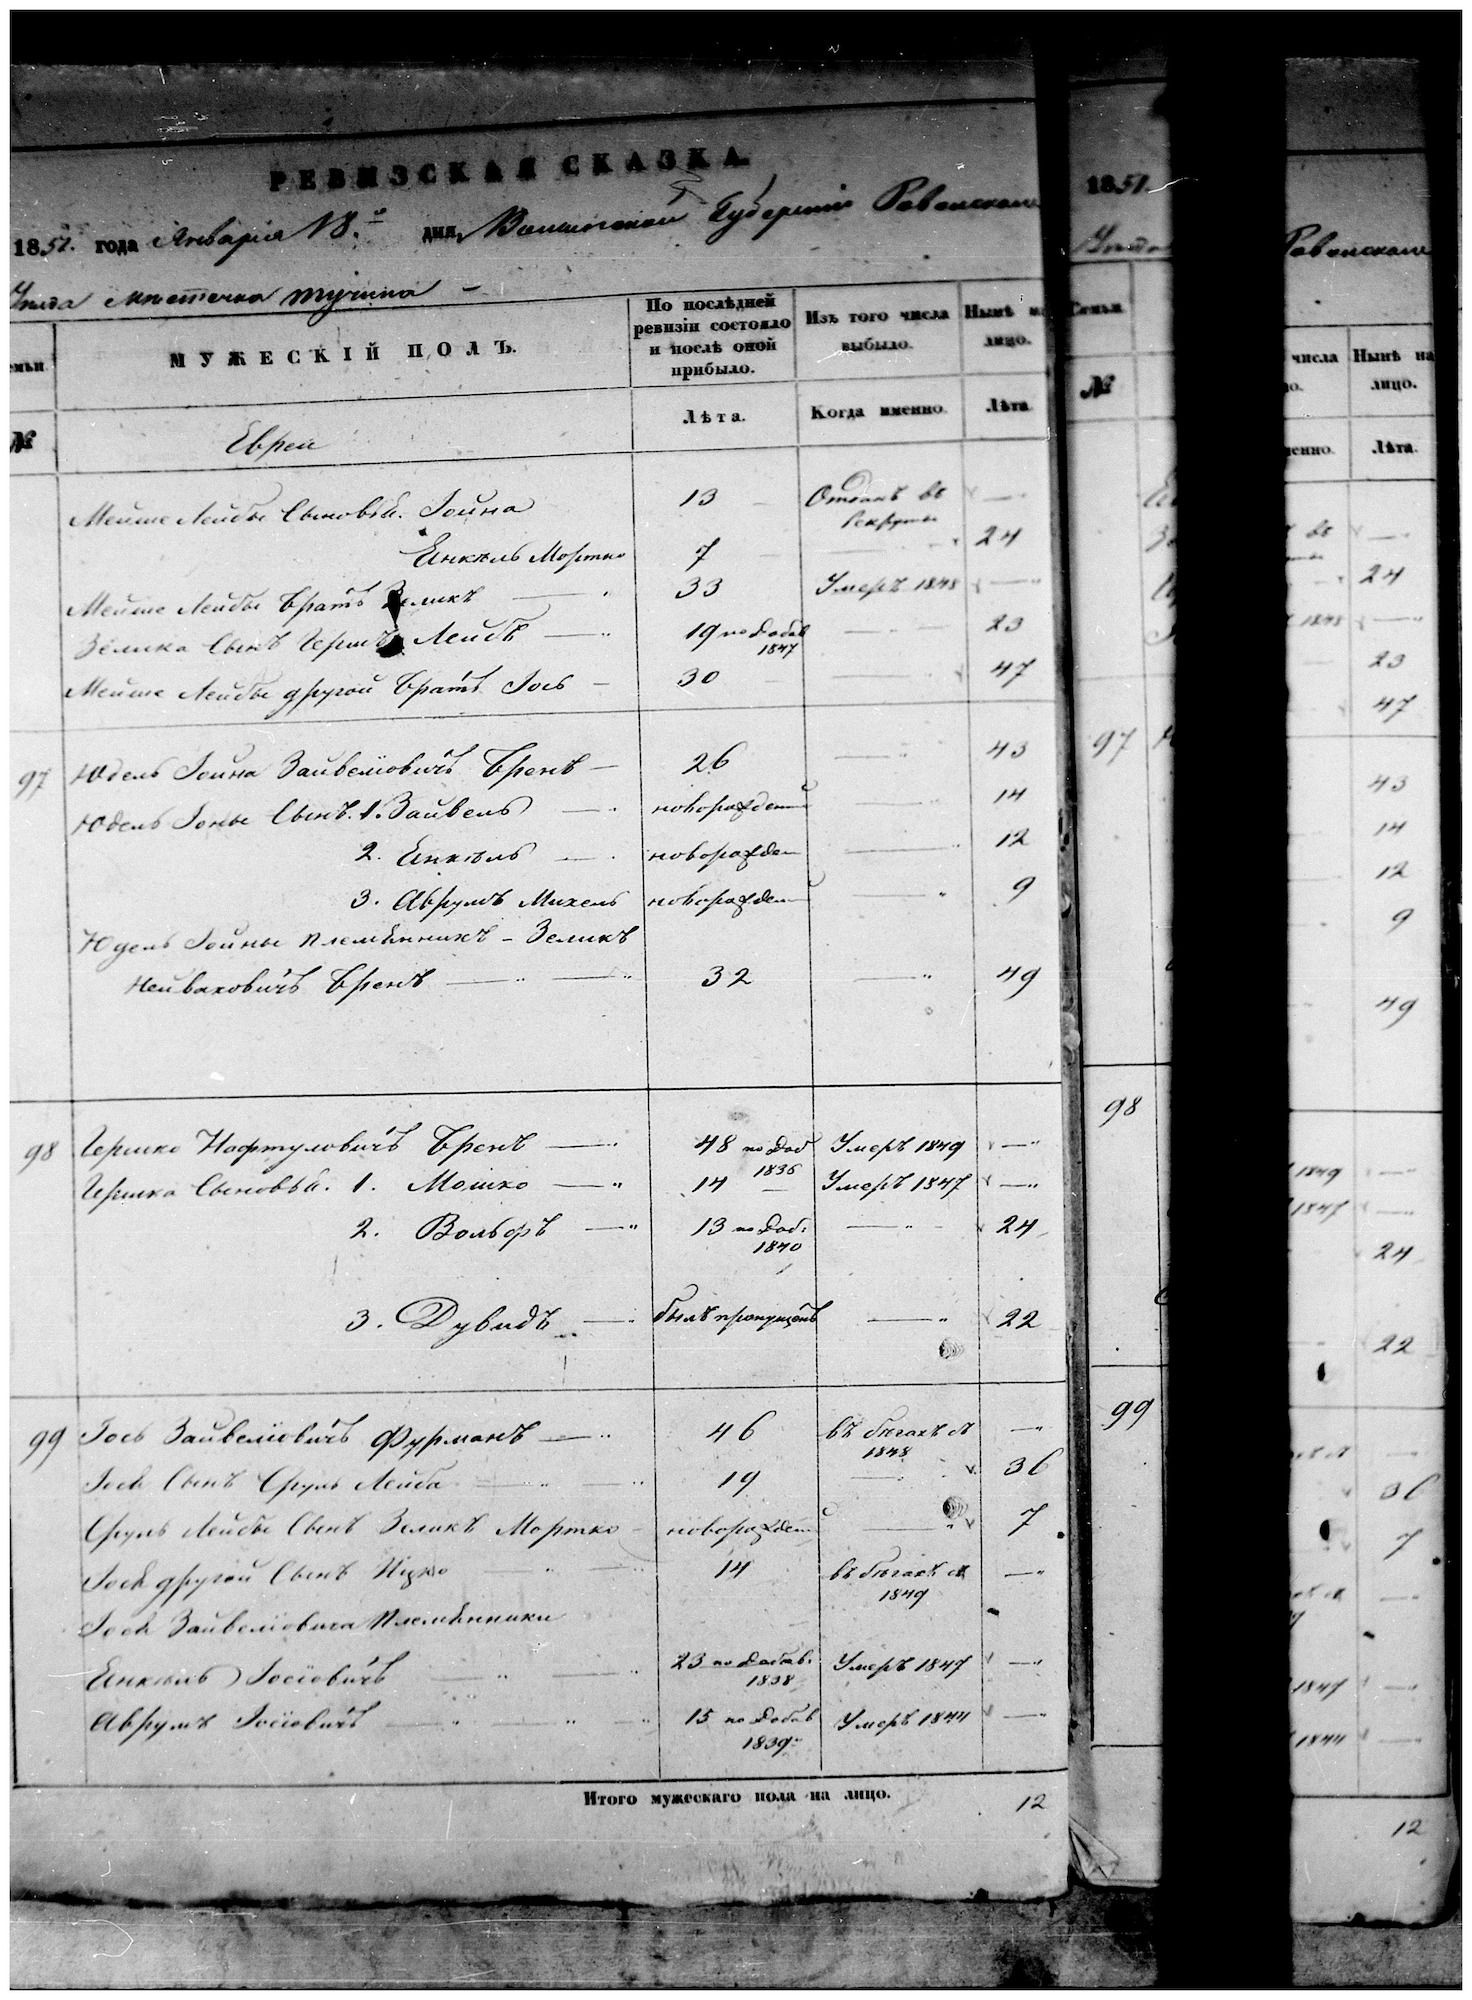 РЕВИЗСКАЯ СКАЗКА.
1851. года Января 18.го дня, Волынской Губернии Ровенскаго
Уезда местечка Тучина
По послѣдней ревизіи состояло и послѣ оной прибыло.
Изъ того числа выбыло.
Нынѣ на лицо.
МУЖЕСКІЙ ПОЛЪ.
Лѣта. Когда именно. Лѣта.
№ Евреи
Мейше Лейбы Сыновья. Іойна 13 Отданъ въ рекруты —
Янкель Мортко 7 24
Мейше Лейбы Братъ Зеликъ 33 Умеръ 1848 —
Зелика Сынъ Герш Лейбъ 19 по добав 1847 — 23
Мейше Лейбы другой Братъ Іось 30 47
97 Юдель Іойна Зайвелiовичъ Бренъ 26 — 43
Юдель Іоны Сынъ. 1. Зайвель новорожденный — 14
2. Янкель новорожден — 12
3. Аврумъ Михель новорожден — 9
Юдель Іойны племянникъ – Зеликъ
Бренъ 32 — 49
98 Гершко Нафтуловичъ Бренъ 48 по доб 1836 Умеръ 1849 —
Гершка Сыновья. 1. Мошко 14 — Умеръ 1847 —
2. Вольфъ 13 по доб. 1840 — 24
3. Дувидъ былъ пропущенъ — 22
99 Іось Зайвелiовичъ Фурманъ 46 въ бегахъ съ 1848 —
Іося Сынъ Сруль Лейба 19 — 36
Сруль Лейбы Сынъ Зеликъ Мортко новорожден — 7
Іося другой Сынъ Ицко 14 въ бегахъ съ 1849 —
Іося Зайвелiовича Племянники
Янкель Іосiовичъ 23 по добав. 1838 Умеръ 1847 —
Аврумъ Іосiовичъ 15 по добав 1839 Умеръ 1844 —
Итого мужескаго пола на лицо. 12
1851.
№
97
98
99
Ровенскаго
числа Нынѣ на
лицо.
Лѣта.
24
1848
23
47
43
14
12
9
49
1849
1847
24
22
36
7
1847
1844
12